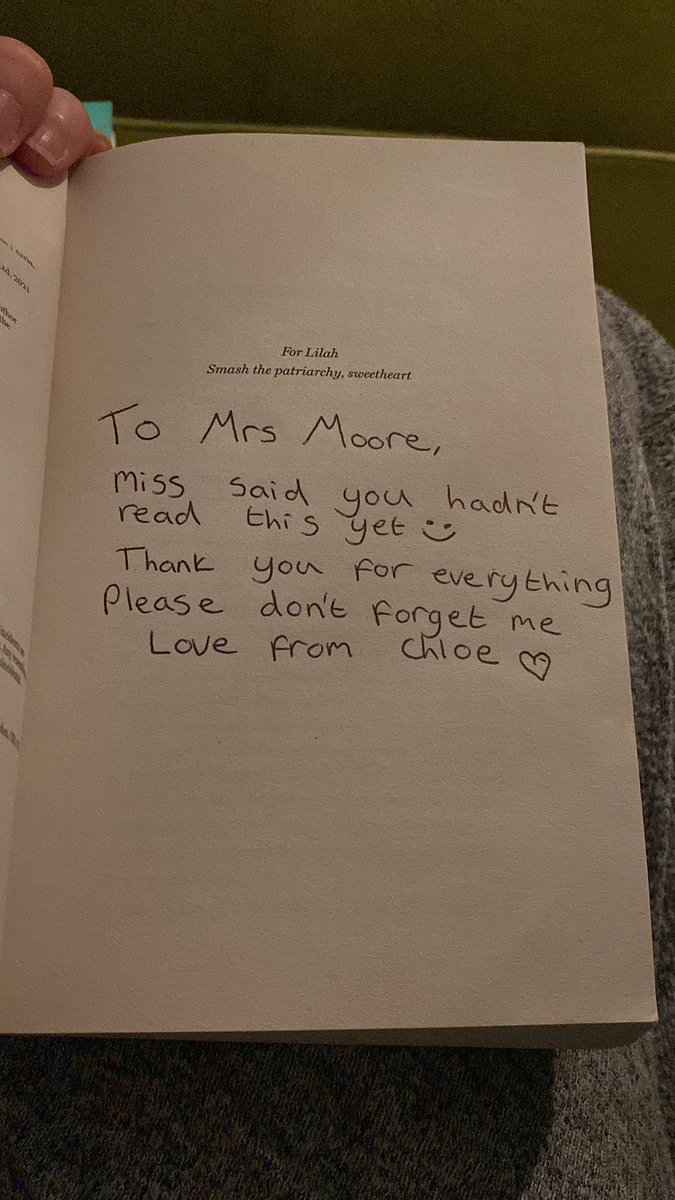 For Lilah
Smash the patriarchy, sweetheart
To Mrs Moore,
Miss said you hadn't
read this yet :)
Thank you for everything
Please don't forget me
Love from Chloe ♡
2021
the